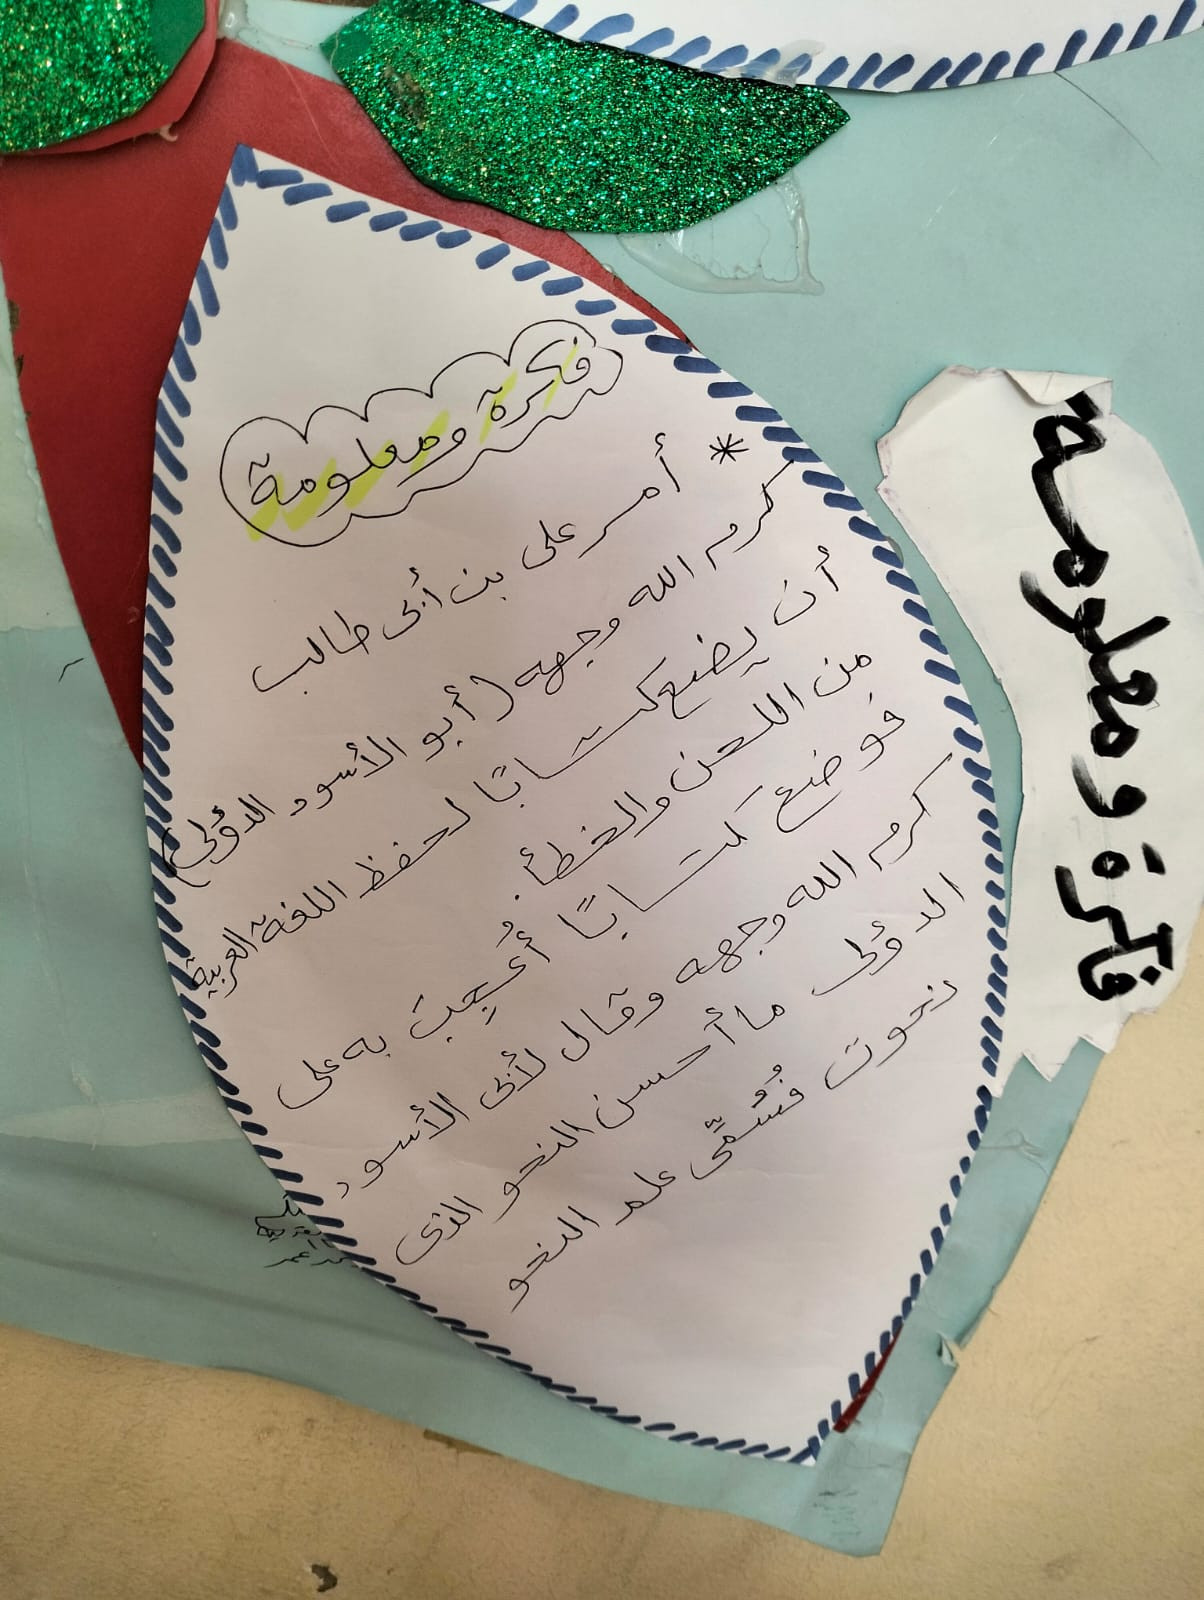 فكرة ومعلومة
* أمر على بن أبى طالب
كرم الله وجهه (أبو الأسود الدؤلى)
أن يضع كتابًا لحفظ اللغة العربية
من اللحن والخطأ.
فوضع كتابًا أُعجِبَ به على
كرم الله وجهه وقال لأبى الأسود
الدؤلى ما أحسن النحو الذى
نحوت فسُمِّى علم النحو
فكرة ومعلومة